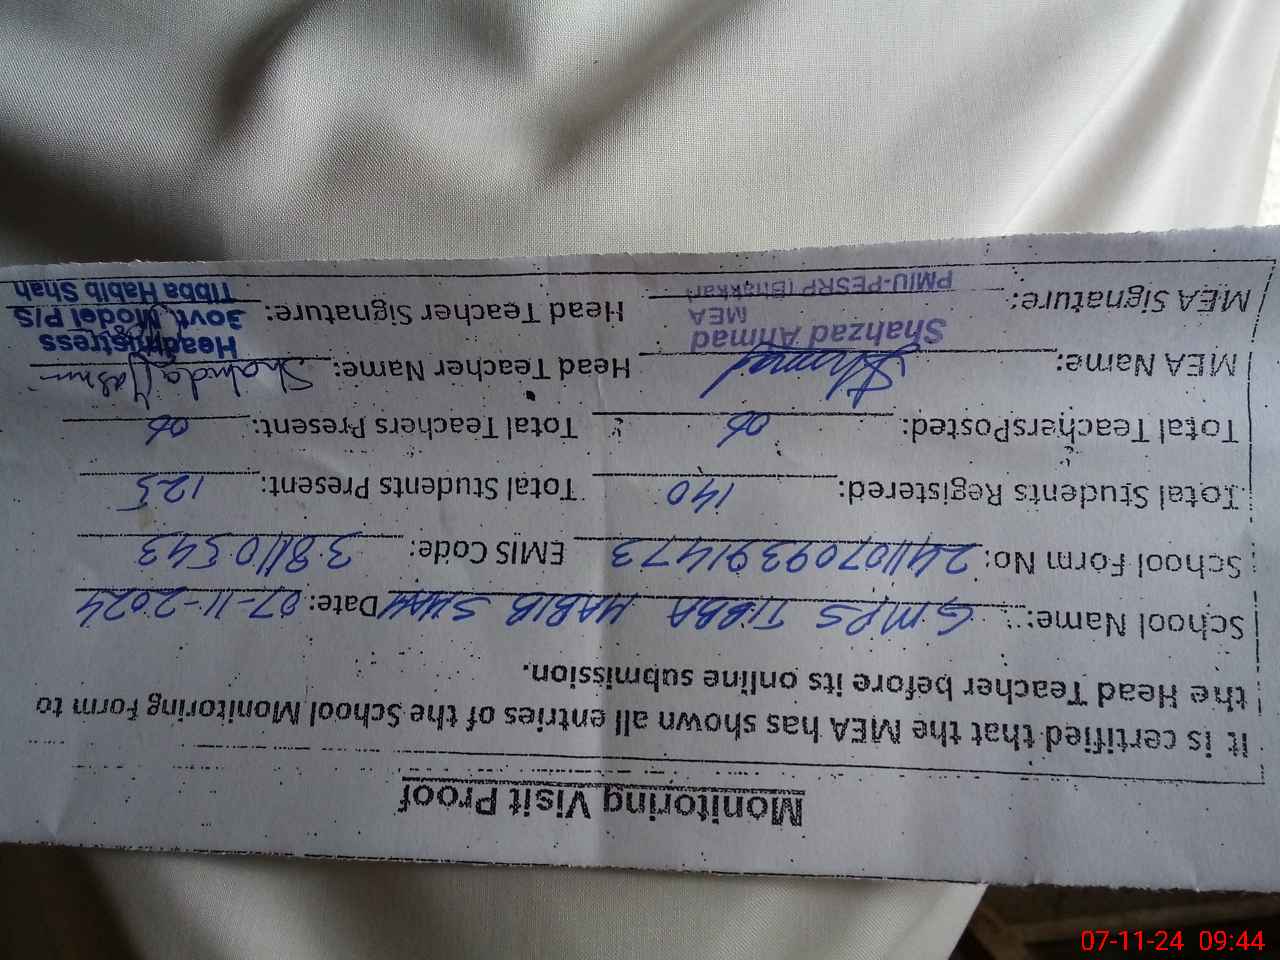 Monitoring Visit Proof
It is certified that the MEA has shown all entries of the School Monitoring Form to
the Head Teacher before its online submission.
School Name: GMPS TIBBA HABIB SHAH Date: 07-11-2024
School Form No: 24110709391473 EMIS Code: 38110543
Total Students Registered: 140 Total Students Present: 125
Total TeachersPosted: 06 Total Teachers Present: 06
MEA Name: Head Teacher Name: Shahida
Shahzad Ahmad
MEA
PMIU-PESRP (Bhakkar)
MEA Signature: Head Teacher Signature:
Headmistress
Govt. Model P/S
Tibba Habib Shah
07-11-24 09:44